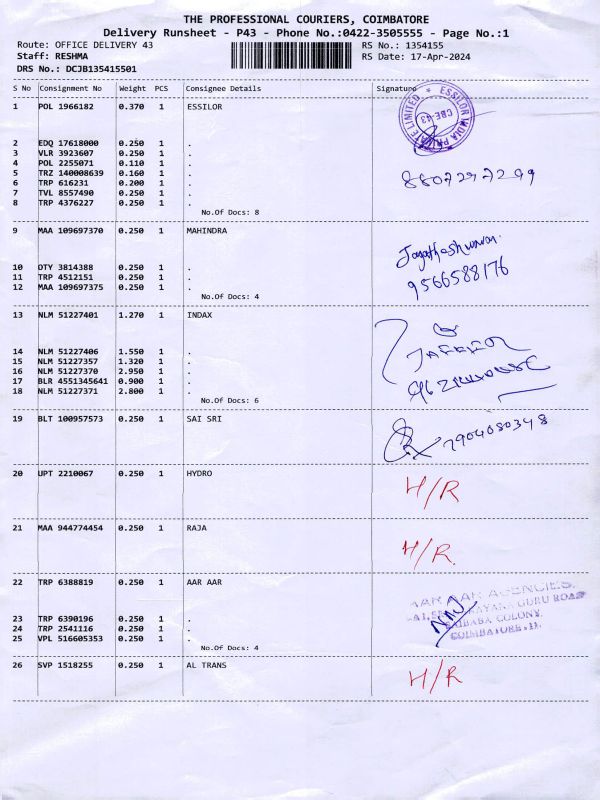 THE PROFESSIONAL COURIERS, COIMBATORE
Delivery Runsheet - P43 - Phone No.:0422-3505555 - Page No.:1
Route: OFFICE DELIVERY 43 RS No.: 1354155
Staff: RESHMA RS Date: 17-Apr-2024
DRS No.: DCJB135415501
S No Consignment No Weight PCS Consignee Details Signature
1 POL 1966182 0.370 1 ESSILOR
ESSILOR INDIA PRIVATE LIMITED *
CBE-43
2 EDQ 17618000 0.250 1 .
3 VLR 3923607 0.250 1 .
4 POL 2255071 0.110 1 .
5 TRZ 140008639 0.160 1 .
6 TRP 616231 0.200 1 .
7 TVL 8557490 0.250 1 .
8 TRP 4376227 0.250 1 .
No.Of Docs: 8
9 MAA 109697370 0.250 1 MAHINDRA
9566588176
10 DTY 3814388 0.250 1 .
11 TRP 4512151 0.250 1 .
12 MAA 109697375 0.250 1 .
No.Of Docs: 4
13 NLM 51227401 1.270 1 INDAX
14 NLM 51227406 1.550 1 .
15 NLM 51227357 1.320 1 .
16 NLM 51227370 2.950 1 .
17 BLR 4551345641 0.900 1 .
18 NLM 51227371 2.800 1 .
No.Of Docs: 6
19 BLT 100957573 0.250 1 SAI SRI
7904080348
20 UPT 2210067 0.250 1 HYDRO
H/R
21 MAA 944774454 0.250 1 RAJA
H/R.
22 TRP 6388819 0.250 1 AAR AAR
AAR AAR AGENCIES,
GURU ROAD
SAIBABA COLONY,
COIMBATORE-11.
23 TRP 6390196 0.250 1 .
24 TRP 2541116 0.250 1 .
25 VPL 516605353 0.250 1 .
No.Of Docs: 4
26 SVP 1518255 0.250 1 AL TRANS
H/R